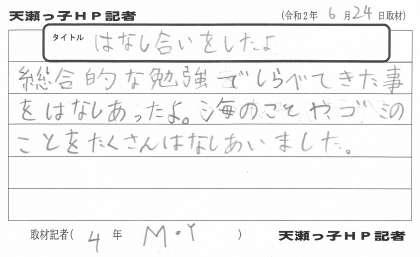 天瀬っ子HP記者 (令和2年 6月24日取材)
タイトル はなし合いをしたよ
総合的な勉強でしらべてきた事
をはなしあったよ。海のことや、ゴミの
ことをたくさんはなしあいました。
取材記者( 4年 M・Y ) 天瀬っ子HP記者